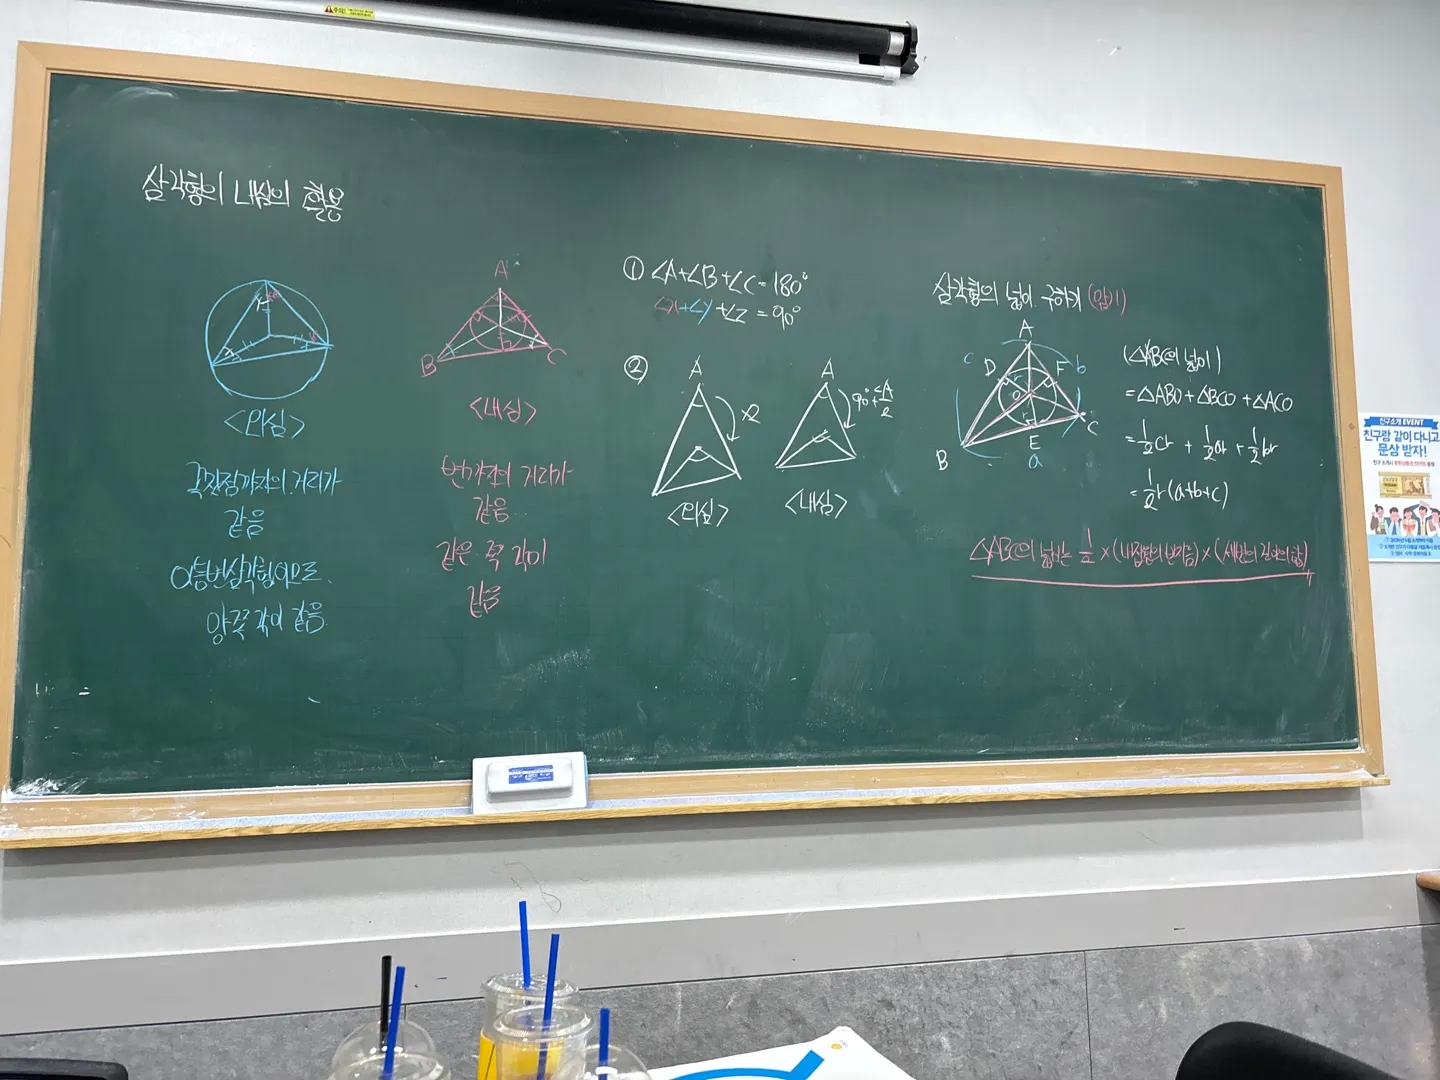 삼각형의 내심의 활용
<외심>
꼭짓점까지의 거리가
같음
이등변삼각형이므로
양쪽 각이 같음
A
B
C
<내심>
변까지의 거리가
같음
같은 쪽 각이
같음
① ∠A+∠B+∠C=180°
∠X+∠Y+∠Z=90°
②
A
×2
<외심>
A
90°+∠A/2
<내심>
삼각형의 넓이 구하기 (암기)
A
c
b
D
F
r
O
r
B
E
C
a
(△ABC의 넓이)
=△ABO+△BCO+△ACO
=1/2cr + 1/2ar + 1/2br
=1/2r(a+b+c)
△ABC의 넓이는 1/2×(내접원의 반지름)×(세변의 길이의 합)
친구소개 EVENT
친구랑 같이 다니고
문상 받자!